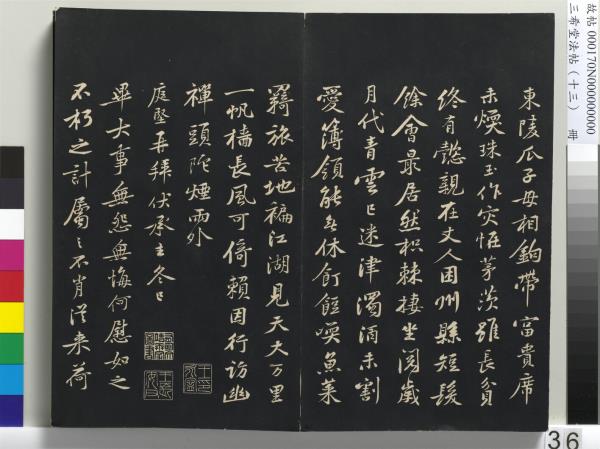 東陵瓜子母相鉤帶富貴席
未煖珠玉作災怪茅茨雖長貧
終有懿親在丈人困州縣短髮
餘會最居然枳棘棲坐閱歲
月代青雲已迷津濁酒未割
愛簿領能休飣餖喚魚菜
羇旅苦地褊江湖見天大万里
一帆檣長風可倚賴因行訪幽
禪頭陀煙雨外
庭堅再拜伏承立冬日
畢大事無怨無悔何慰如之
不朽之計屬之不肖從來荷
故帖 000170N000000000
三希堂法帖(十三) 冊
36